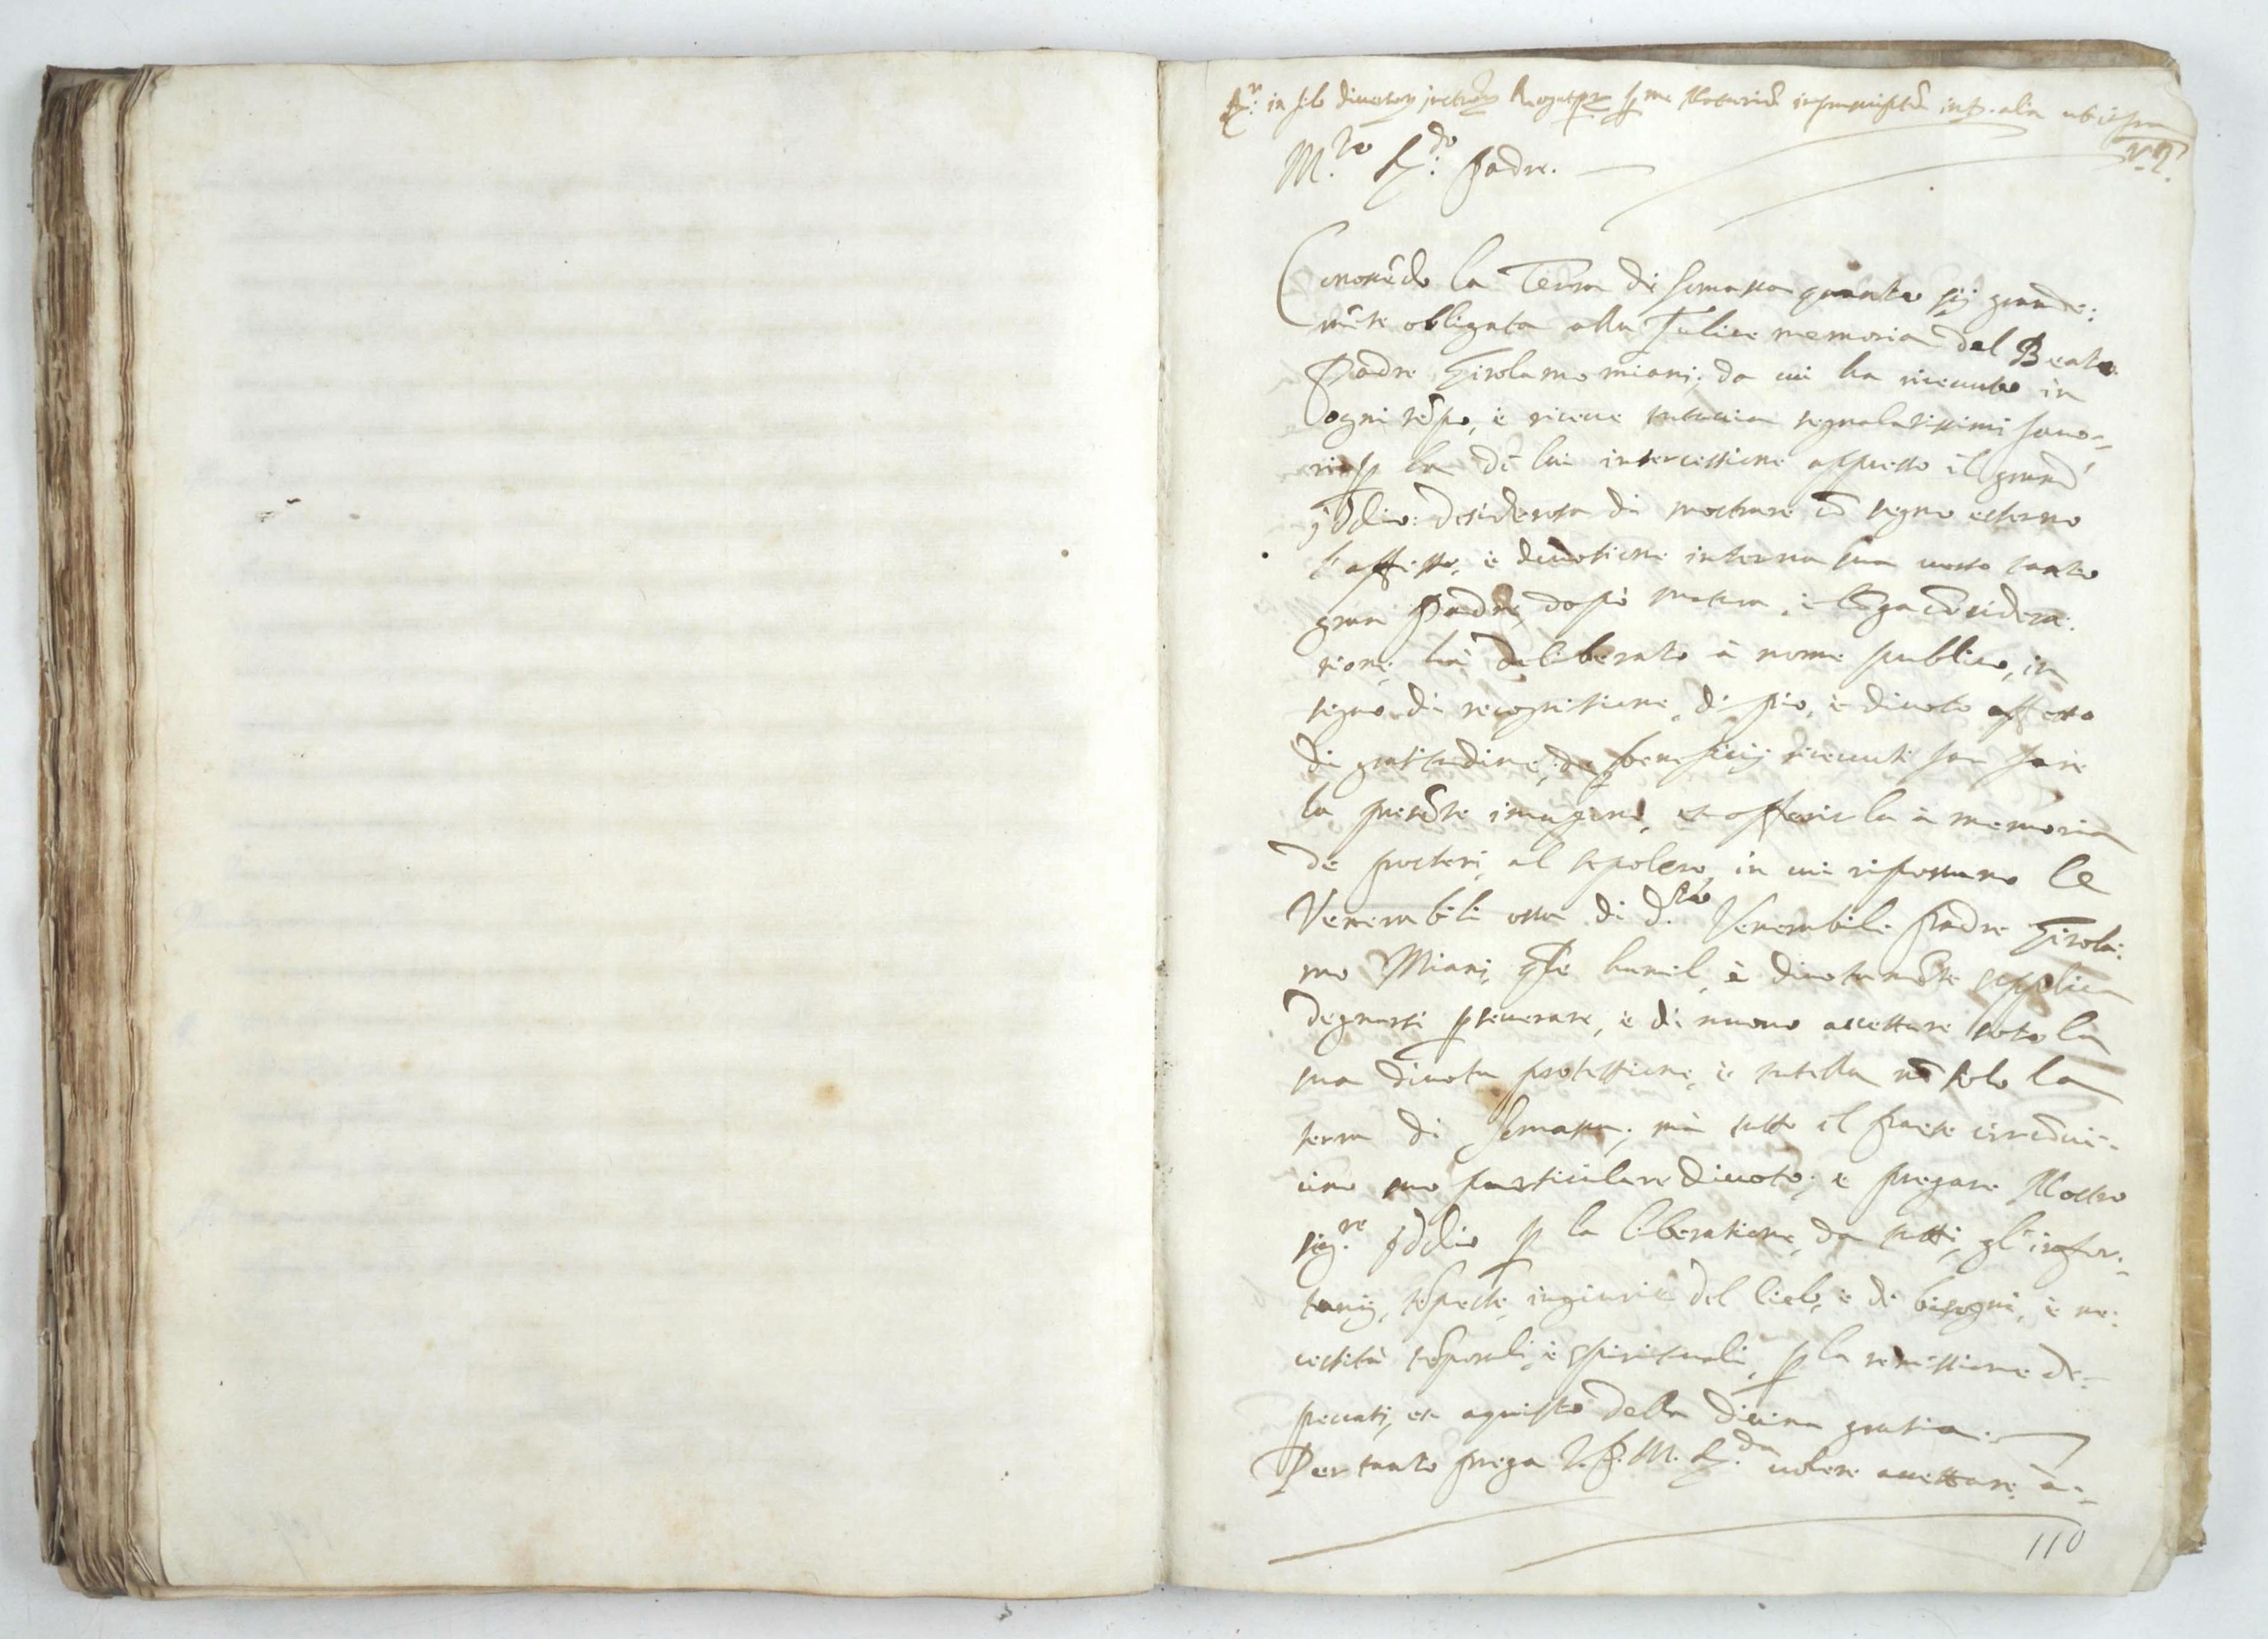 in filo diversorum
M.to R.do Padre.
Conoscẽdo la Terra di Somasca quanto sij grande:
mẽte obligata alla Felice memoria del Beato
Padre Girolamo miani; da cui ha riceuuto in
ogni tẽpo, è riceue tuttauia segnalatissimi fauo-
ri p la di lui intercessione appresso il grand'
Iddio: desiderosa di mostrare cõ segno esterno
l'affetto, è diuotione interna sua uerso tanto
gran Padre, dopò matura, è lõga cõsidera:
tione, hà deliberato à nome publico, in
segno di recognitione, di pio, è diuoto affetto
di gratitudine, de beneficij riceuuti far fare
la presẽte imagine, et offerirla à memoria
de posteri, al sepolcro, in cui riposano le
Venerabili ossa di d.to Venerabile Padre Girola:
mo Miani, humil, è diuotamẽte supplica
degnarsi pseuerare, è di nuouo accettare sotto la
sua diuota protettione, è tutella nõ solo la
terra di Somasca; mà tutto il paese circõui-
cino suo particulare diuoto; è pregare Nostro
Sig.re Iddio p la liberatione, da tutti, gl'infor-
tunij, tẽpeste, ingiurie del Cielo, è de bisogni, è ne:
cessità tẽporali, è spirituali, p la remissione de-
peccati, et aquisto della diuina gratia.
Per tanto prega V. P. M. R.da uolere accettare, à:-
110